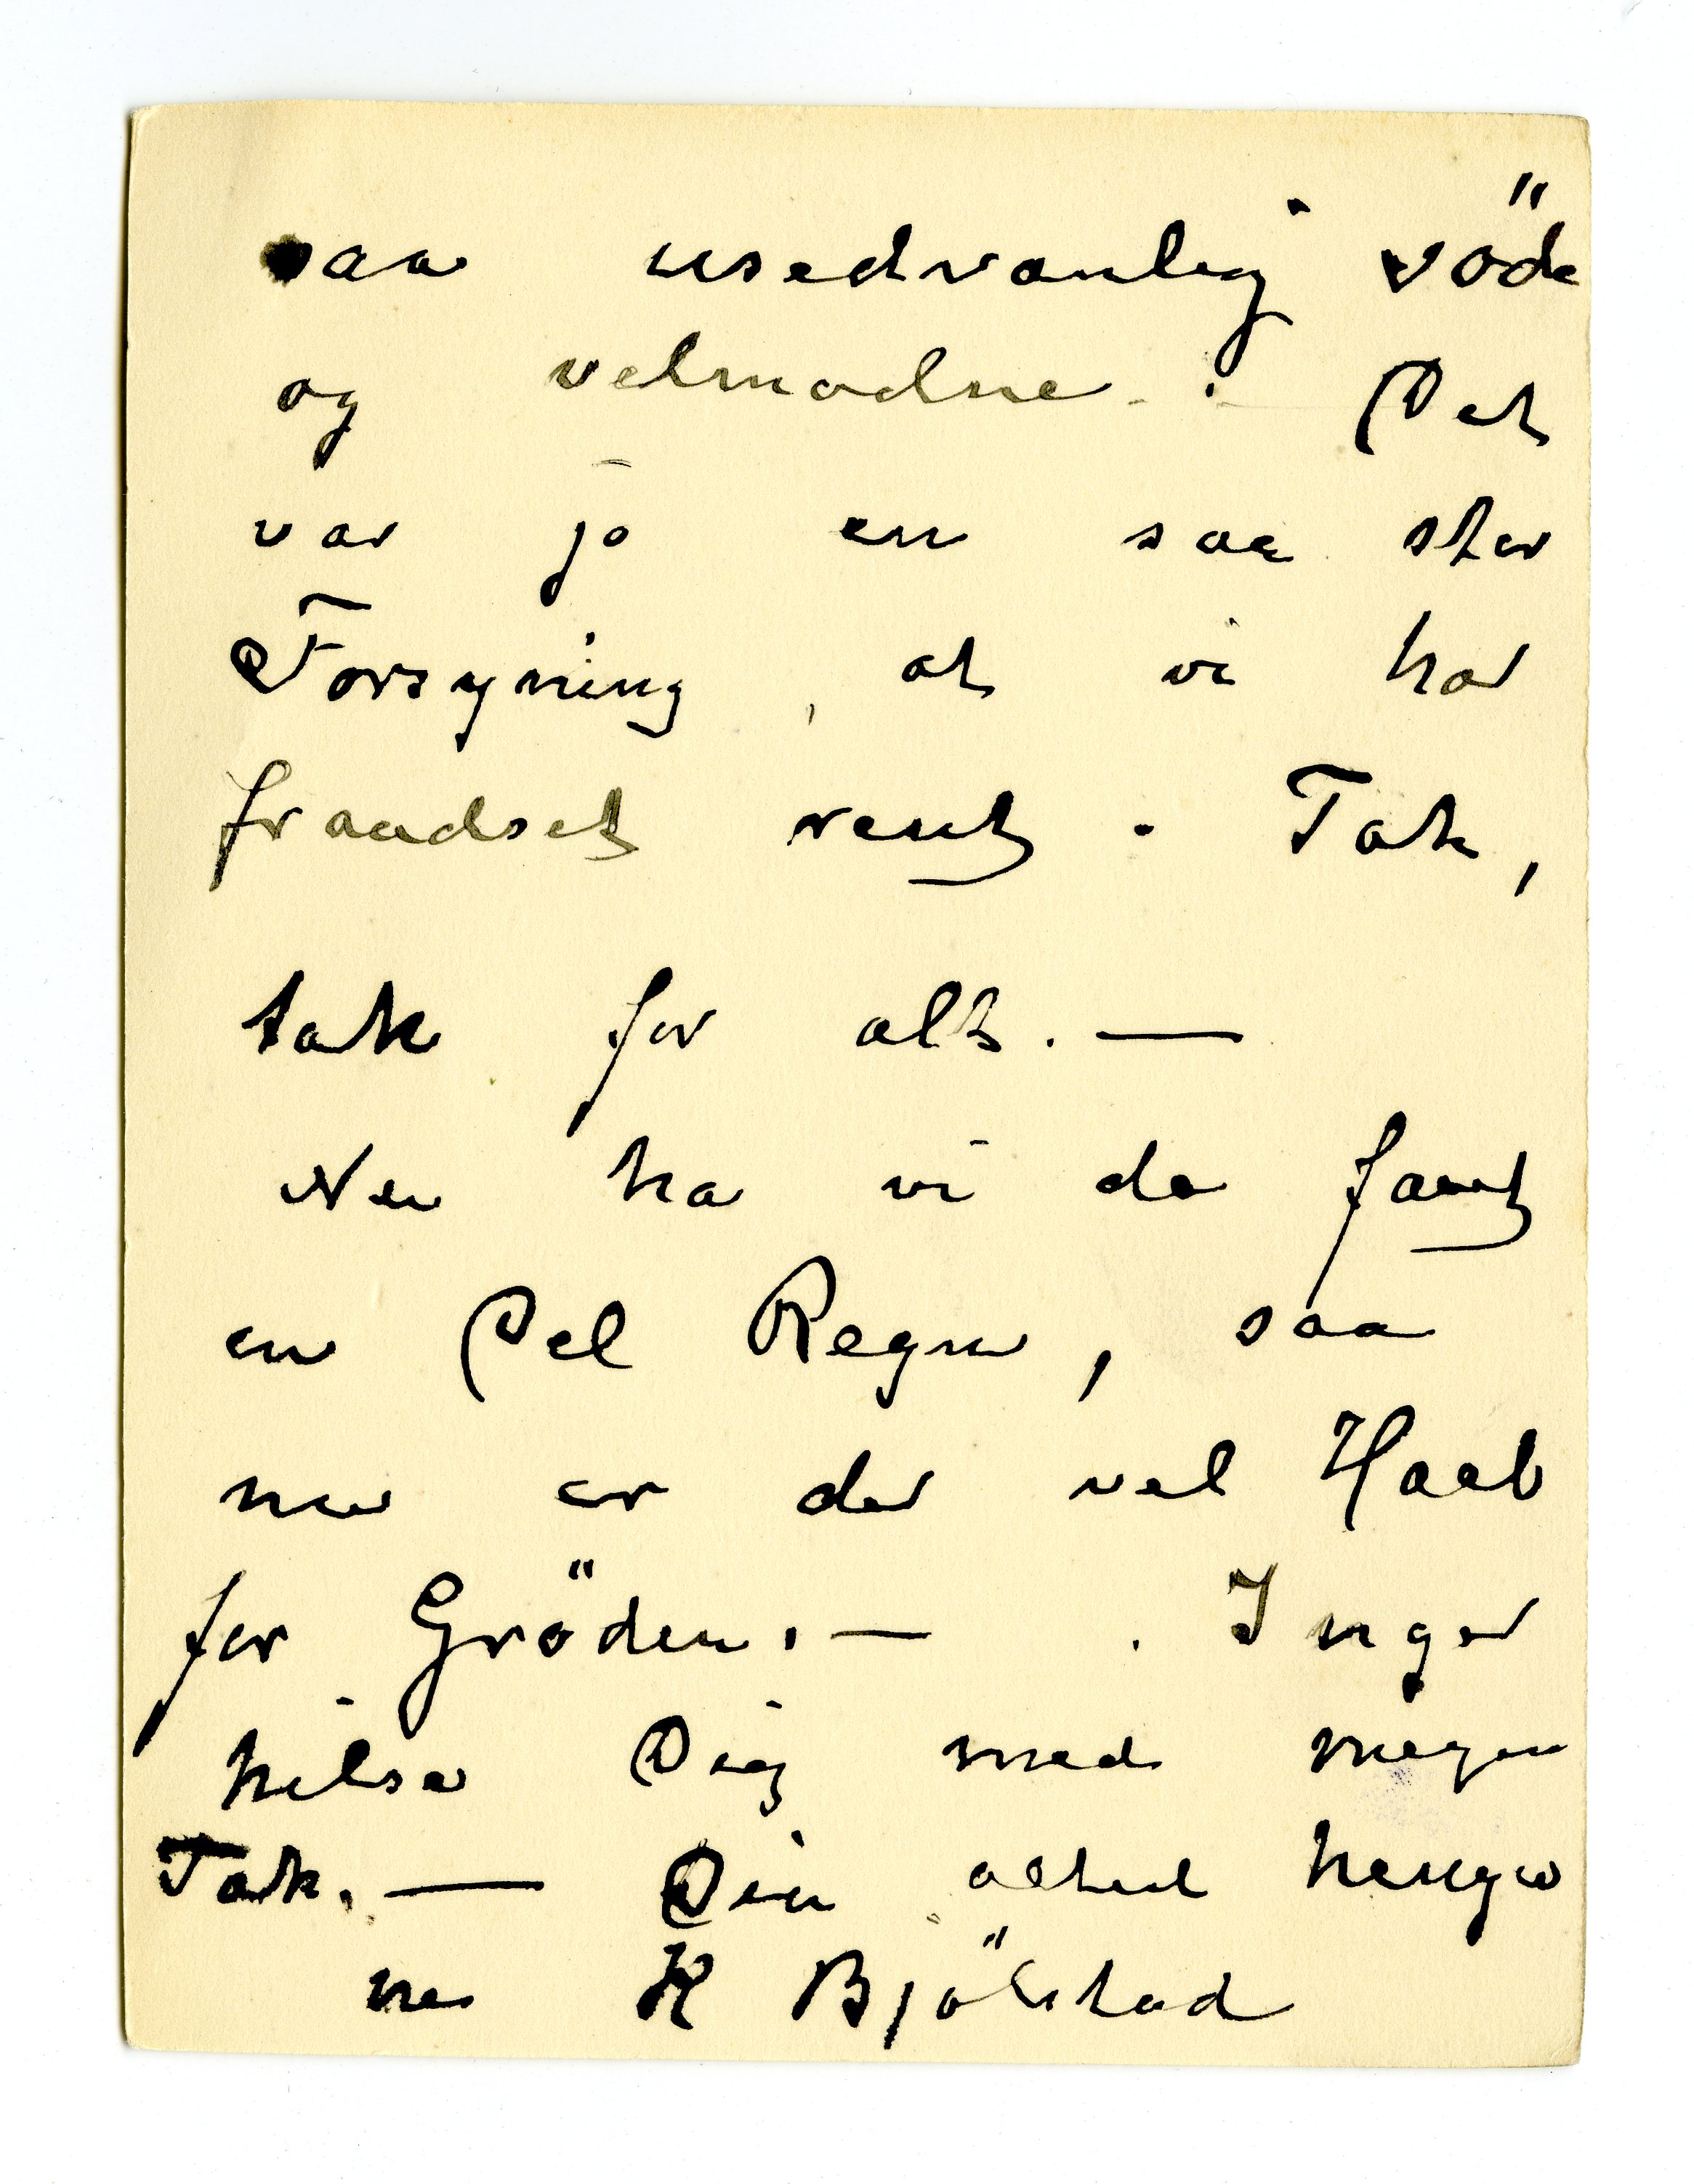 saa usedvanlig söde
og velmodne. Det
var jo en saa stor
Forsyning, at vi har
fraadset rent. Tak,
tak for alt. —
Nu ha vi da faaet
en Del Regn, saa
nu er der vel Haab
for Gröden. — Inger
hilser Dig med megen
Tak. — Din altid hengiv
ne K Bjölstad